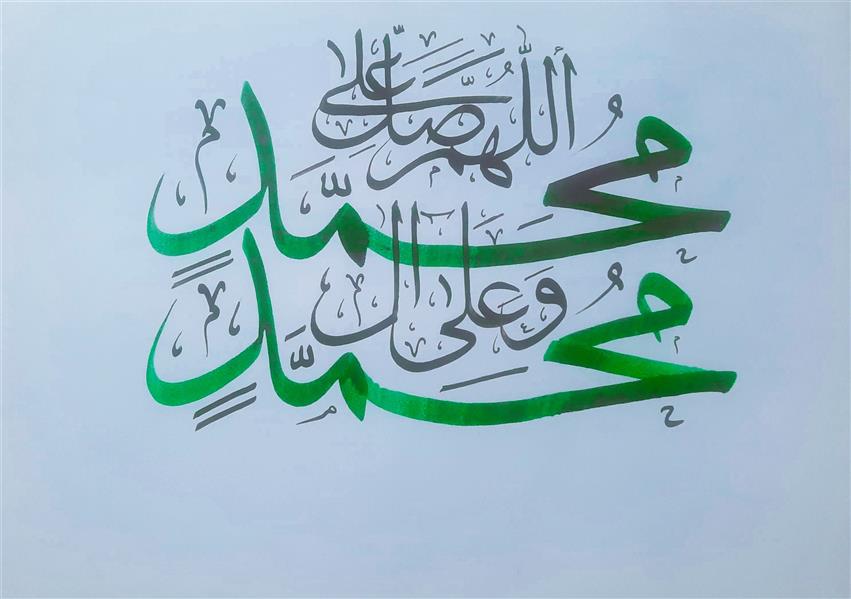 اللّٰهُمَّ صَلِّ عَلَى
مُحَمَّدٍ
وَعَلَى آلِ
مُحَمَّدٍ